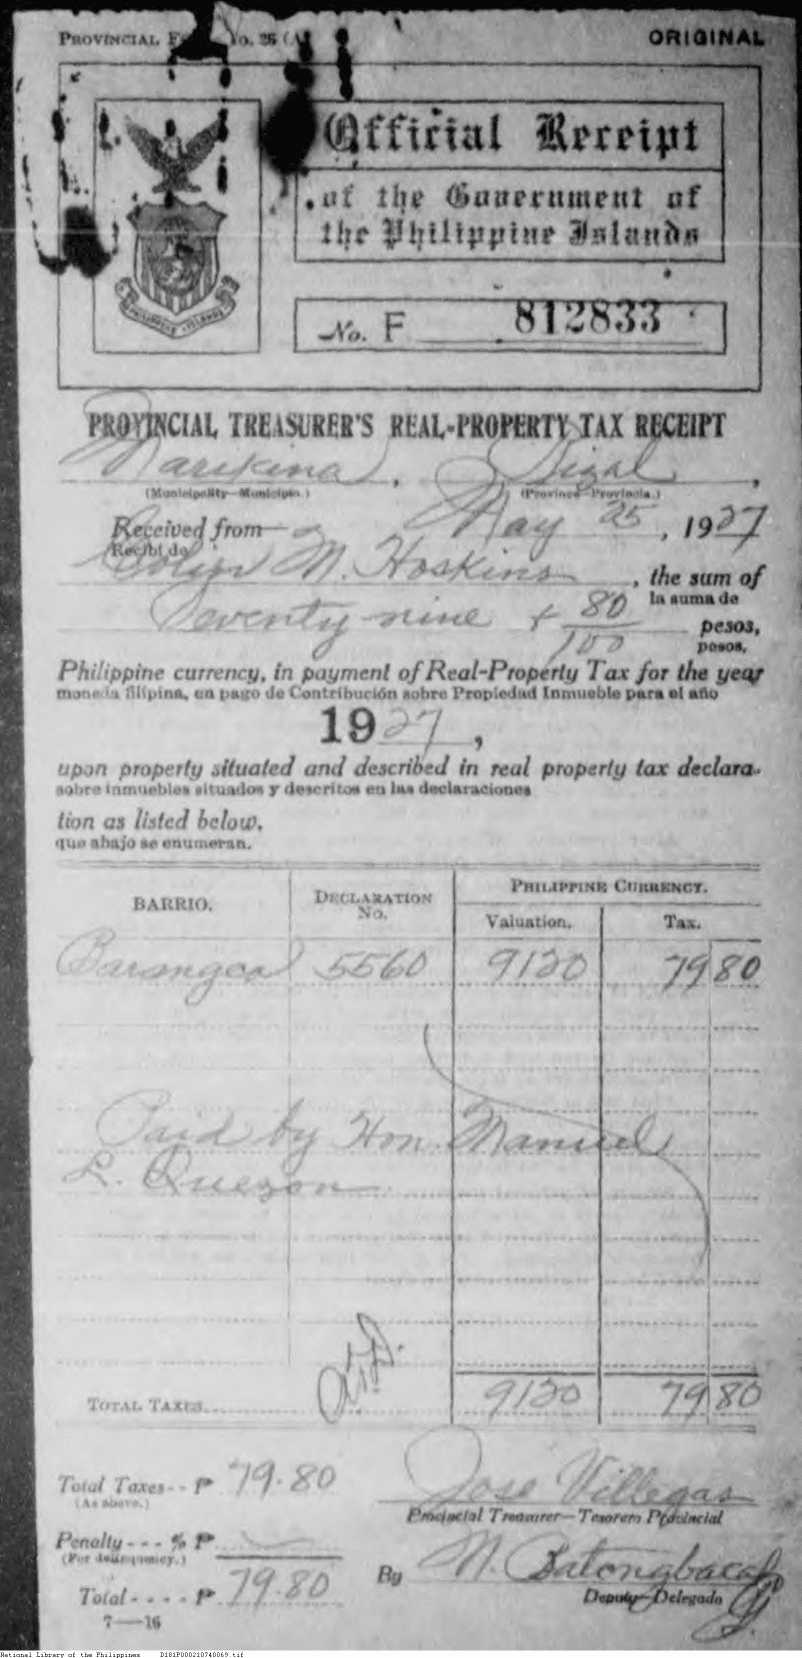 PROVINCIAL No. 26 (A
ORIGINAL
Official Receipt
of the Government of
the Philippine Islands
PHILIPPINE ISLANDS
No. F 812833
PROVINCIAL TREASURER'S REAL-PROPERTY TAX RECEIPT
Marikina, Rizal,
(Municipality—Municipio.) (Province—Provincia.)
Received from May 25, 1927
Recibí de
M. Hoskins, the sum of
la suma de
Seventy-nine + 80/100 pesos,
pesos,
Philippine currency, in payment of Real-Property Tax for the year
moneda filipina, en pago de Contribución sobre Propiedad Inmueble para el año
1927,
upon property situated and described in real property tax declara-
sobre inmuebles situados y descritos en las declaraciones
tion as listed below.
que abajo se enumeran.
BARRIO. DECLARATION No. PHILIPPINE CURRENCY.
Valuation. Tax.
Barangca 5560 9120 79 80
Paid by Hon. Manuel
L. Quezon
TOTAL TAXES 9120 79 80
Total Taxes - - ₱ 79.80
(As above.)
Jose Villegas
Provincial Treasurer—Tesorero Provincial
Penalty - - - % ₱
(For delinquency.)
By N. Batongbacal
Total - - - - ₱ 79.80
Deputy—Delegado
7—16
National Library of the Philippines D181P000210740069.tif